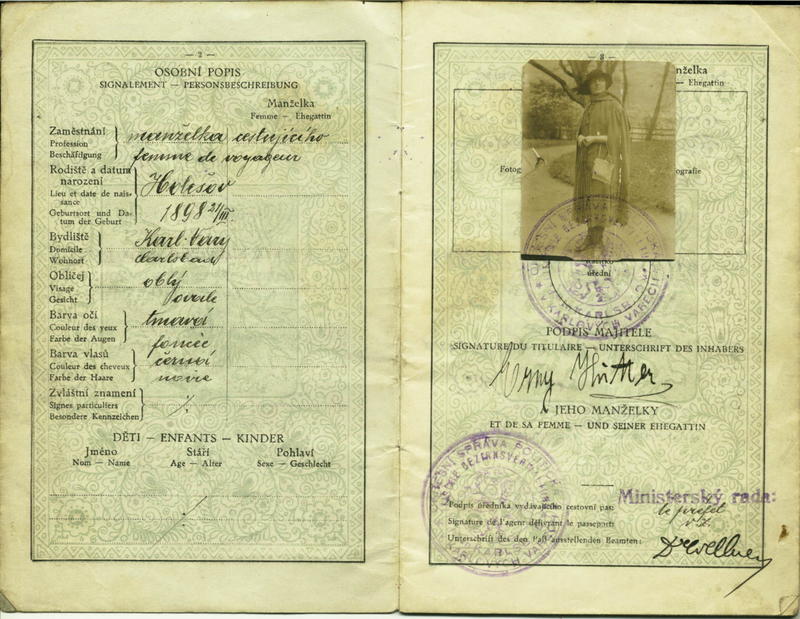 — 2 —
OSOBNÍ POPIS
SIGNALEMENT — PERSONSBESCHREIBUNG
Manželka
Femme — Ehegattin
Zaměstnání
Profession
Beschäftigung
manželka cestujícího
femme de voyageur
Rodiště a datum
narození
Lieu et date de nais-
sance
Geburtsort und Da-
tum der Geburt
Holešov
1898 21/III
Bydliště
Domicile
Wohnort
Karl. Vary
Carlsbad
Obličej
Visage
Gesicht
oblý
ovale
Barva očí
Couleur des yeux
Farbe der Augen
tmavá
foncée
Barva vlasů
Couleur des cheveux
Farbe der Haare
černá
noire
Zvláštní znamení
Signes particuliers
Besondere Kennzeichen
DĚTI — ENFANTS — KINDER
Jméno Stáří Pohlaví
Nom — Name Age — Alter Sexe — Geschlecht
— 3 —
nželka
Ehegattin
Fotog
ografie
úřední
PODPIS MAJITELE
SIGNATURE DU TITULAIRE — UNTERSCHRIFT DES INHABERS
A JEHO MANŽELKY
ET DE SA FEMME — UND SEINER EHEGATTIN
Ministerský rada:
Podpis úředníka vydávajícího cestovní pas:
le préfet
Signature de l'agent délivrant le passeport:
v. z.
Unterschrift des den Paß ausstellenden Beamten: